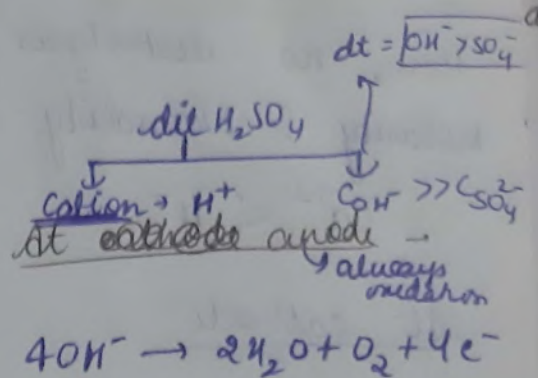 dt = OH⁻ > SO₄⁻
dil H₂SO₄
Cation → H⁺
C_OH⁻ >> C_SO₄²⁻
At cathode anode →
always
oxidation
4OH⁻ → 2H₂O + O₂ + 4e⁻